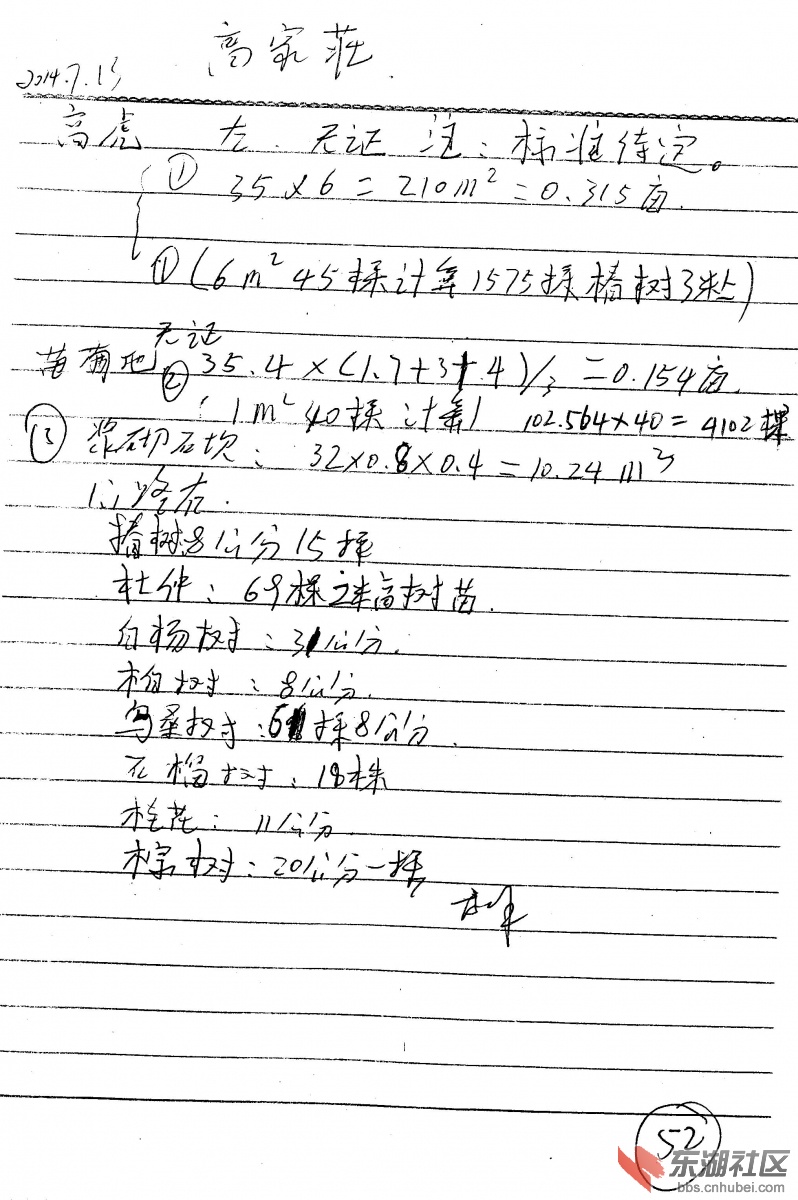 高家莊
2014.7.13
高虎 左. 无证 注:标准待定。
① 35×6=210m²=0.315亩.
①(6m²45棵计算1575棵椿树3米)
无证
苗圃地 ② 35.4×(1.7+3+4)/3=0.154亩.
(1m²40棵计算) 102.564×40=4102棵
③ 浆砌石坎: 32×0.8×0.4=10.24m³
路右.
椿树8公分15棵
杜仲: 69棵 高树苗.
白杨树: 31公分.
柏树: 8公分.
乌桑树: 6 棵8公分.
石榴树: 18株
桂花: 11公分.
棕树: 20公分一棵
52
东湖社区
bbs.cnhubei.com